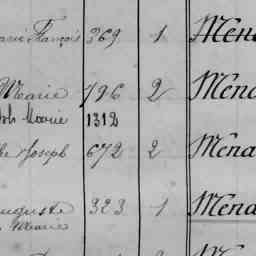 François 369 1 Mén
Marie 796 2 Ména
Marie 1312
Joseph 672 2 Ména
Auguste 323 1 Mén
Marie